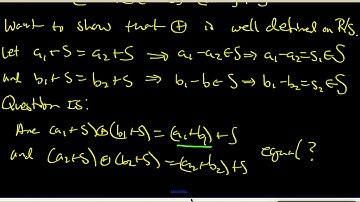 Want to show that ⊕ is well defined on R/S.
Let a₁+S = a₂+S ⟹ a₁-a₂∈S ⟹ a₁-a₂=s₁∈S
and b₁+S = b₂+S ⟹ b₁-b∈S ⟹ b₁-b₂=s₂∈S
Question is:
Are (a₁+S)⊕(b₁+S) = (a₁+b₁)+S
and (a₂+S)⊕(b₂+S) = (a₂+b₂)+S equal ?